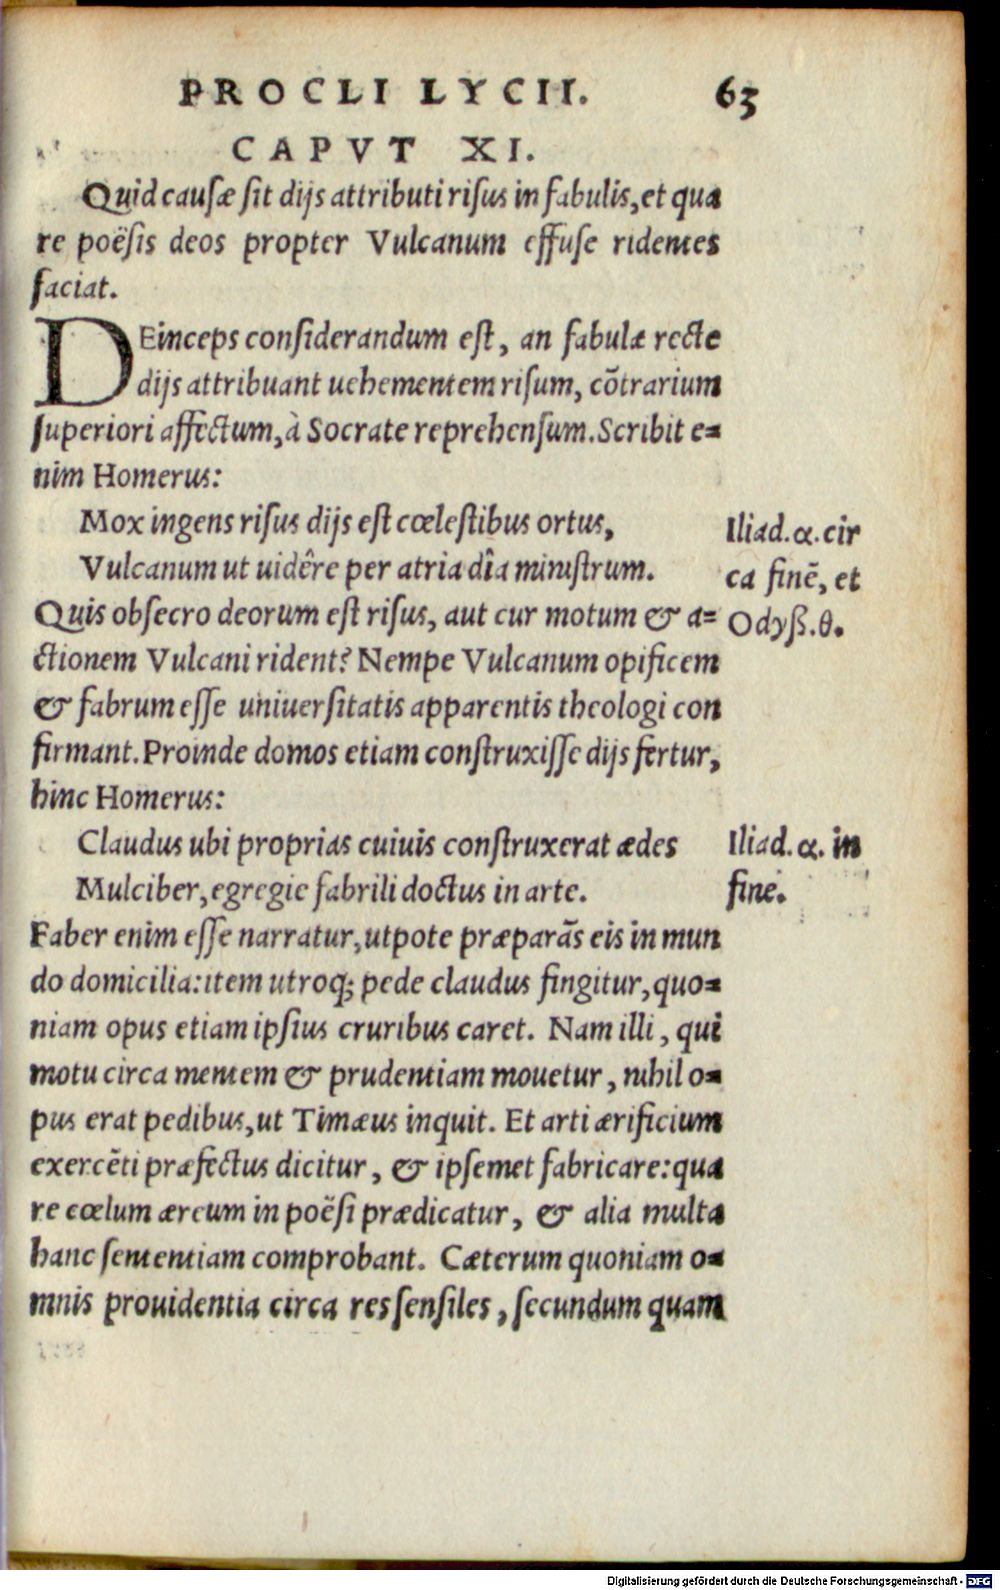 PROCLI LYCII. 63
CAPVT XI.
Quid causæ sit dijs attributi risus in fabulis, et qua
re poësis deos propter Vulcanum effuse ridentes
faciat.
DEinceps considerandum est, an fabulæ recte
dijs attribuant uehementem risum, cõtrarium
superiori affectum, à Socrate reprehensum. Scribit e=
nim Homerus:
Mox ingens risus dijs est cœlestibus ortus,
Vulcanum ut uidêre per atria dîa ministrum.
Iliad. α. cir
ca finẽ, et
Odyß. θ.
Quis obsecro deorum est risus, aut cur motum & a=
ctionem Vulcani rident? Nempe Vulcanum opificem
& fabrum esse uniuersitatis apparentis theologi con
firmant. Proinde domos etiam construxisse dijs fertur,
hinc Homerus:
Claudus ubi proprias cuiuis construxerat ædes
Mulciber, egregie fabrili doctus in arte.
Iliad. α. in
fine.
Faber enim esse narratur, utpote præparãs eis in mun
do domicilia: item utroq; pede claudus fingitur, quo=
niam opus etiam ipsius cruribus caret. Nam illi, qui
motu circa mentem & prudentiam mouetur, nihil o=
pus erat pedibus, ut Timæus inquit. Et arti ærificium
exercẽti præfectus dicitur, & ipsemet fabricare: qua
re cœlum æreum in poësi prædicatur, & alia multa
hanc sententiam comprobant. Cæterum quoniam o=
mnis prouidentia circa res sensiles, secundum quam
Digitalisierung gefördert durch die Deutsche Forschungsgemeinschaft - DFG